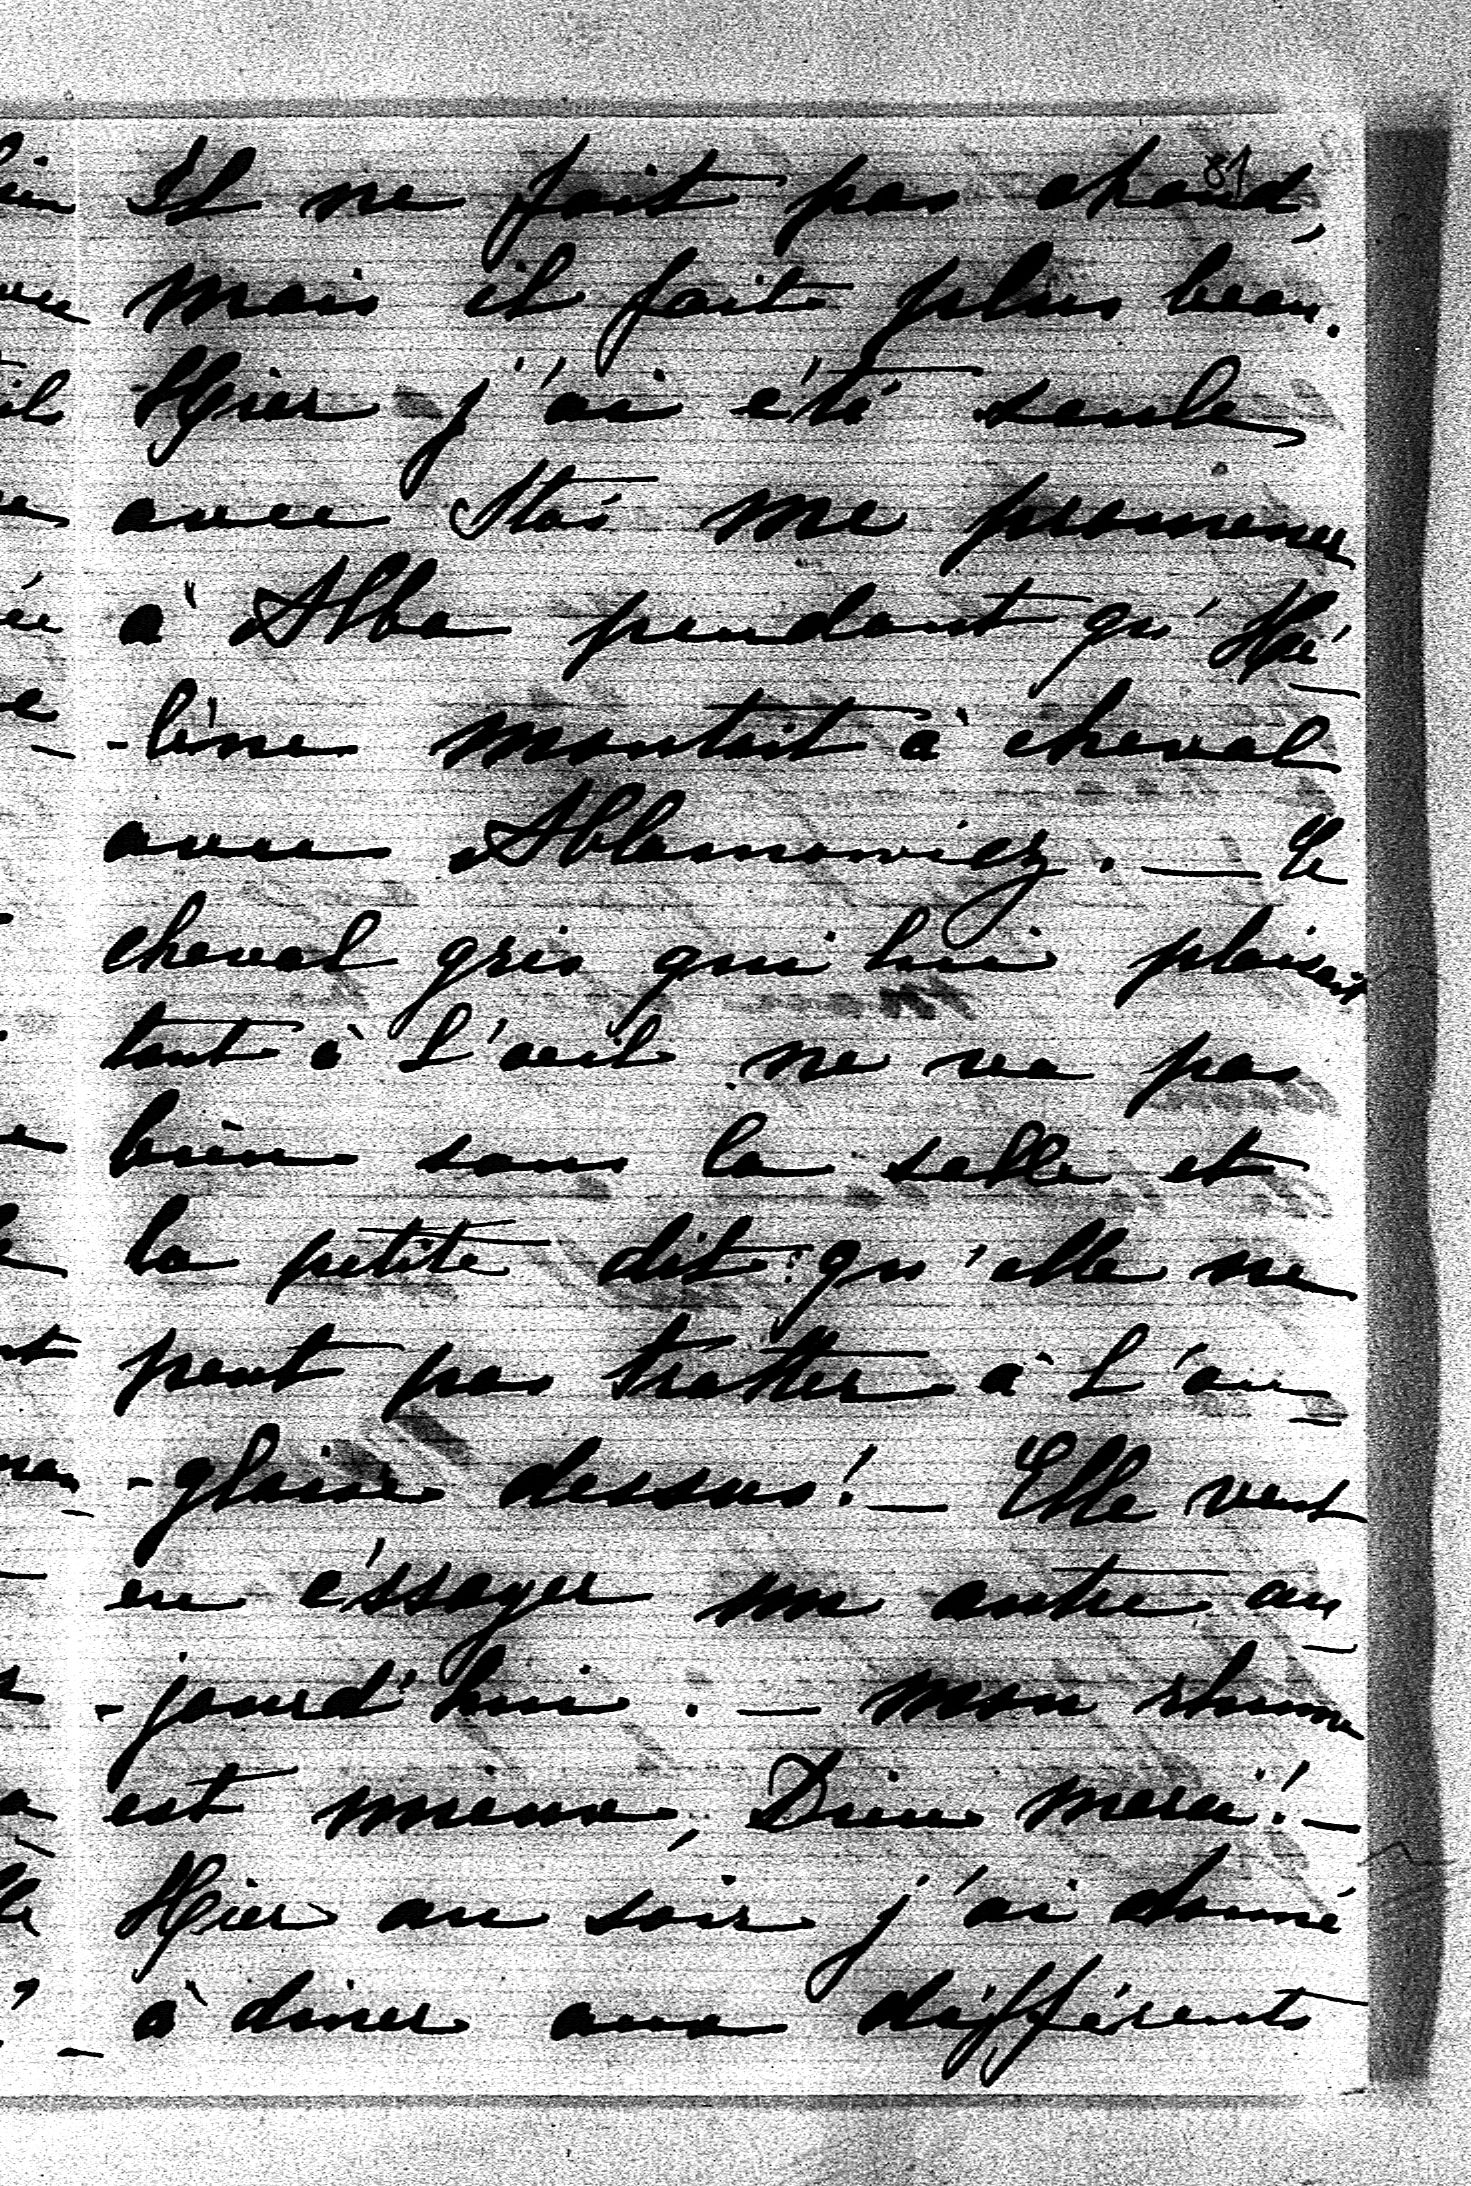 81
Il ne fait pas chaud,
mais il fait plus beau.
Hier j'ai été seule
avec Staś me promener
à Alba pendant qu'Hé-
-lène montait à cheval
avec Ablamowicz. — Le
cheval gris qui lui plaisait
tant à l'oeil ne va pas
bien sous la selle et
la petite dit qu'elle ne
peut pas trotter à l'an-
-glaise dessus! — Elle veut
en éssayer un autre au-
-jourd'hui. — Mon rhume
est mieux, Dieu merci! —
Hier au soir j'ai donné
à diner aux différents